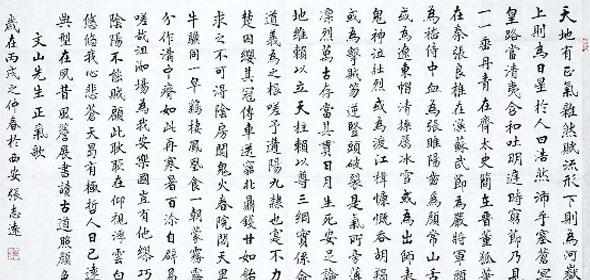 天地有正氣雜然賦流形下則為河
上則為日星於人曰浩然沛乎塞蒼
皇路當清夷含和吐明庭時窮節乃
一一垂丹青在齊太史簡在晉董狐
在秦張良椎在漢蘇武節為嚴將軍
為嵇侍中血為張睢陽齒為顏常山
或為遼東帽清操厲冰雪或為出師
鬼神泣壯烈或為渡江楫慷慨吞胡
或為擊賊笏逆豎頭破裂是氣所旁
凜烈萬古存當其貫日月生死安足
地維賴以立天柱賴以尊三綱實係命
道義為之根嗟予遘陽九隸也實不力
楚囚纓其冠傳車送窮北鼎鑊甘如飴
求之不可得陰房闃鬼火春院閟天黑
牛驥同一皁雞棲鳳凰食一朝蒙霧露
分作溝中瘠如此再寒暑百沴自辟易
嗟哉沮洳場為我安樂國豈有他繆巧
陰陽不能賊顧此耿耿在仰視浮雲白
悠悠我心悲蒼天曷有極哲人日已遠
典型在夙昔風簷展書讀古道照顏色
文山先生正氣歌
歲在丙戌之仲春於西安張志遠